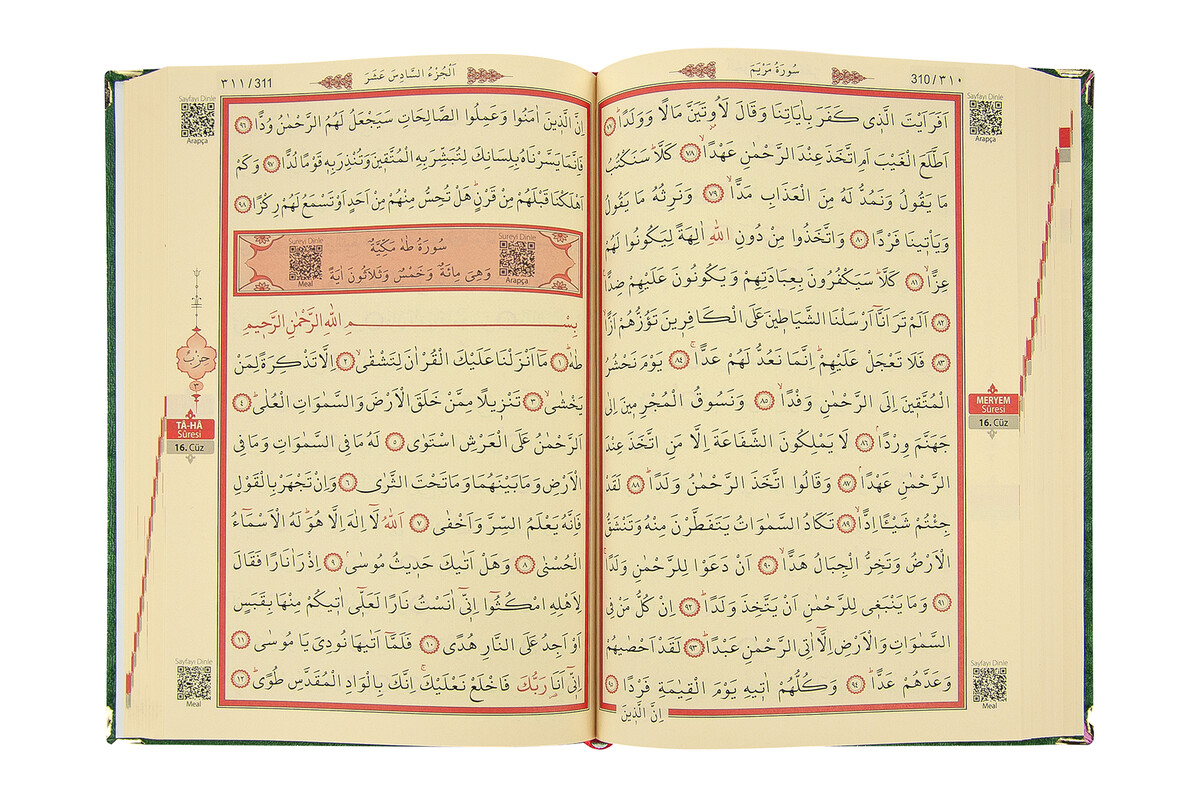 310/٣١٠
سُورَةُ مَرْيَمَ
Sayfayı Dinle
Arapça
اَفَرَاَيْتَ الَّذٖى كَفَرَ بِاٰيَاتِنَا وَقَالَ لَاُوتَيَنَّ مَالًا وَوَلَدًاؕ ٧٧
اَطَّلَعَ الْغَيْبَ اَمِ اتَّخَذَ عِنْدَ الرَّحْمٰنِ عَهْدًاۙ ٧٨ كَلَّاؕ سَنَكْتُبُ
مَا يَقُولُ وَنَمُدُّ لَهُ مِنَ الْعَذَابِ مَدًّاۙ ٧٩ وَنَرِثُهُ مَا يَقُولُ
وَيَاْتٖينَا فَرْدًا ٨٠ وَاتَّخَذُوا مِنْ دُونِ اللّٰهِ اٰلِهَةً لِيَكُونُوا لَهُمْ
عِزًّاۙ ٨١ كَلَّاؕ سَيَكْفُرُونَ بِعِبَادَتِهِمْ وَيَكُونُونَ عَلَيْهِمْ ضِدًّا
٨٢ اَلَمْ تَرَ اَنَّٓا اَرْسَلْنَا الشَّيَاطٖينَ عَلَى الْكَافِرٖينَ تَؤُزُّهُمْ اَزًّاۙ
٨٣ فَلَا تَعْجَلْ عَلَيْهِمْؕ اِنَّمَا نَعُدُّ لَهُمْ عَدًّاۚ ٨٤ يَوْمَ نَحْشُرُ
الْمُتَّقٖينَ اِلَى الرَّحْمٰنِ وَفْدًاۙ ٨٥ وَنَسُوقُ الْمُجْرِمٖينَ اِلٰى
جَهَنَّمَ وِرْدًاۘ ٨٦ لَا يَمْلِكُونَ الشَّفَاعَةَ اِلَّا مَنِ اتَّخَذَ عِنْدَ
الرَّحْمٰنِ عَهْدًاۘ ٨٧ وَقَالُوا اتَّخَذَ الرَّحْمٰنُ وَلَدًاؕ ٨٨ لَقَدْ
جِئْتُمْ شَيْـًٔا اِدًّاۙ ٨٩ تَكَادُ السَّمٰوَاتُ يَتَفَطَّرْنَ مِنْهُ وَتَنْشَقُّ
الْاَرْضُ وَتَخِرُّ الْجِبَالُ هَدًّاۙ ٩٠ اَنْ دَعَوْا لِلرَّحْمٰنِ وَلَدًاۚ
٩١ وَمَا يَنْبَغٖى لِلرَّحْمٰنِ اَنْ يَتَّخِذَ وَلَدًاؕ ٩٢ اِنْ كُلُّ مَنْ فِى
السَّمٰوَاتِ وَالْاَرْضِ اِلَّٓا اٰتِى الرَّحْمٰنِ عَبْدًاؕ ٩٣ لَقَدْ اَحْصٰيهُمْ
وَعَدَّهُمْ عَدًّاؕ ٩٤ وَكُلُّهُمْ اٰتٖيهِ يَوْمَ الْقِيٰمَةِ فَرْدًا ٩٥
اِنَّ الَّذٖينَ
MERYEM
Sûresi
16. Cüz
Sayfayı Dinle
Meal
اَلْجُزْءُ السَّادِسَ عَشَرَ
٣١١/311
Sayfayı Dinle
Arapça
اِنَّ الَّذٖينَ اٰمَنُوا وَعَمِلُوا الصَّالِحَاتِ سَيَجْعَلُ لَهُمُ الرَّحْمٰنُ وُدًّا ٩٦
فَاِنَّمَا يَسَّرْنَاهُ بِلِسَانِكَ لِتُبَشِّرَ بِهِ الْمُتَّقٖينَ وَتُنْذِرَ بِهٖ قَوْمًا لُدًّا ٩٧ وَكَمْ
اَهْلَكْنَا قَبْلَهُمْ مِنْ قَرْنٍؕ هَلْ تُحِسُّ مِنْهُمْ مِنْ اَحَدٍ اَوْ تَسْمَعُ لَهُمْ رِكْزًا ٩٨
Sureyi Dinle
Arapça
سُورَةُ طٰهٰ مَكِّيَّةٌ
وَهِىَ مِائَةٌ وَخَمْسٌ وَثَلَاثُونَ اٰيَةً
Sureyi Dinle
Meal
بِسْمِ اللّٰهِ الرَّحْمٰنِ الرَّحٖيمِ
طٰهٰ ١ مَٓا اَنْزَلْنَا عَلَيْكَ الْقُرْاٰنَ لِتَشْقٰىۙ ٢ اِلَّا تَذْكِرَةً لِمَنْ
يَخْشٰىۙ ٣ تَنْزٖيلًا مِمَّنْ خَلَقَ الْاَرْضَ وَالسَّمٰوَاتِ الْعُلٰىؕ ٤
اَلرَّحْمٰنُ عَلَى الْعَرْشِ اسْتَوٰى ٥ لَهُ مَا فِى السَّمٰوَاتِ وَمَا فِى
الْاَرْضِ وَمَا بَيْنَهُمَا وَمَا تَحْتَ الثَّرٰى ٦ وَاِنْ تَجْهَرْ بِالْقَوْلِ
فَاِنَّهُ يَعْلَمُ السِّرَّ وَاَخْفٰى ٧ اَللّٰهُ لَٓا اِلٰهَ اِلَّا هُوَؕ لَهُ الْاَسْمَٓاءُ
الْحُسْنٰى ٨ وَهَلْ اَتٰيكَ حَدٖيثُ مُوسٰىۘ ٩ اِذْ رَاٰ نَارًا فَقَالَ
لِاَهْلِهِ امْكُثُٓوا اِنّٖٓى اٰنَسْتُ نَارًا لَعَلّٖٓى اٰتٖيكُمْ مِنْهَا بِقَبَسٍ
اَوْ اَجِدُ عَلَى النَّارِ هُدًى ١٠ فَلَمَّٓا اَتٰيهَا نُودِىَ يَا مُوسٰى ١١
اِنّٖٓى اَنَا۬ رَبُّكَ فَاخْلَعْ نَعْلَيْكَۚ اِنَّكَ بِالْوَادِ الْمُقَدَّسِ طُوًىؕ ١٢
حزب
٣
TÂ-HÂ
Sûresi
16. Cüz
Sayfayı Dinle
Meal